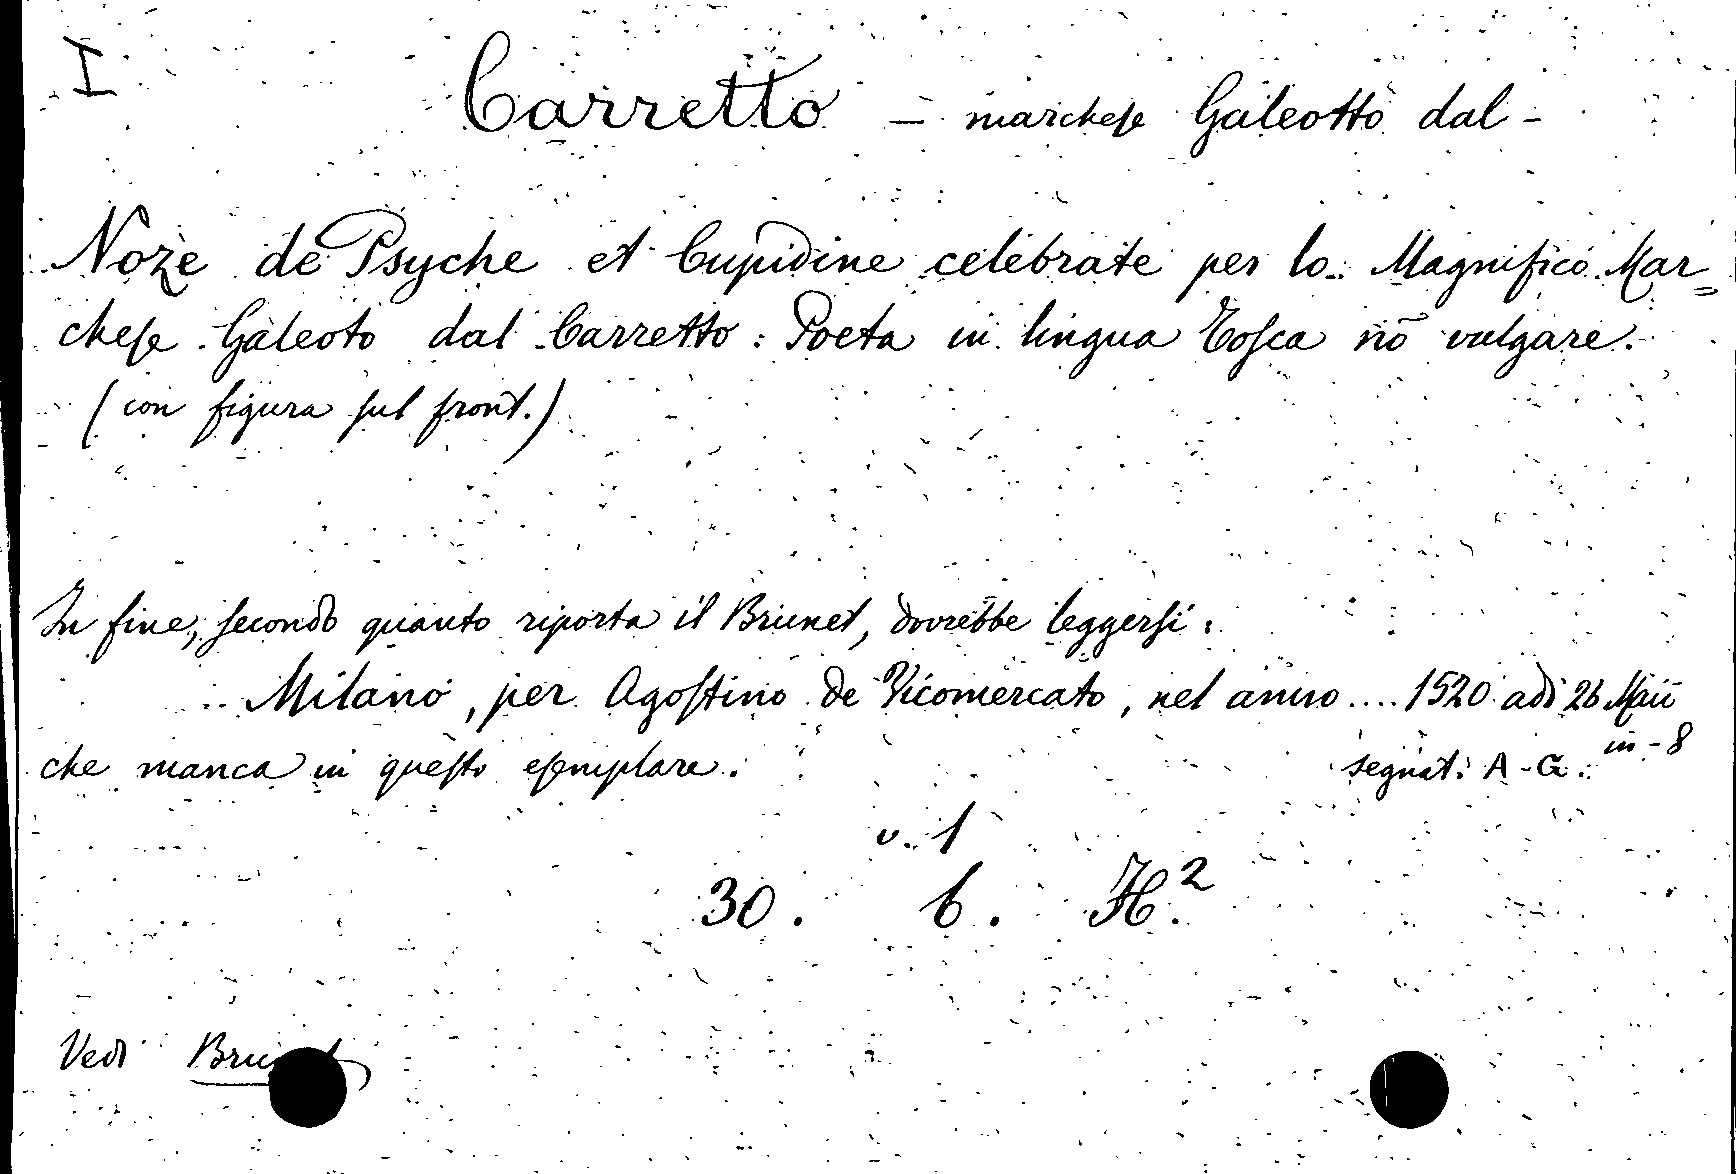 I
Carretto – marchese Galeotto dal -
Noze de Psyche et Cupidine celebrate per lo Magnifico Mar=
chese Galeoto dal Carretto: Poeta in lingua Tosca nō vulgare.
(con figura sul front.)
In fine, secondo quanto riporta il Brunet, dovrebbe leggersi:
Milano, per Agostino de Vicomercato, nel anno .... 1520 adi 26 Maii
in-8
che manca in questo esemplare. segnat: A-G.
v. 1
30. 6. H.²
Vedi